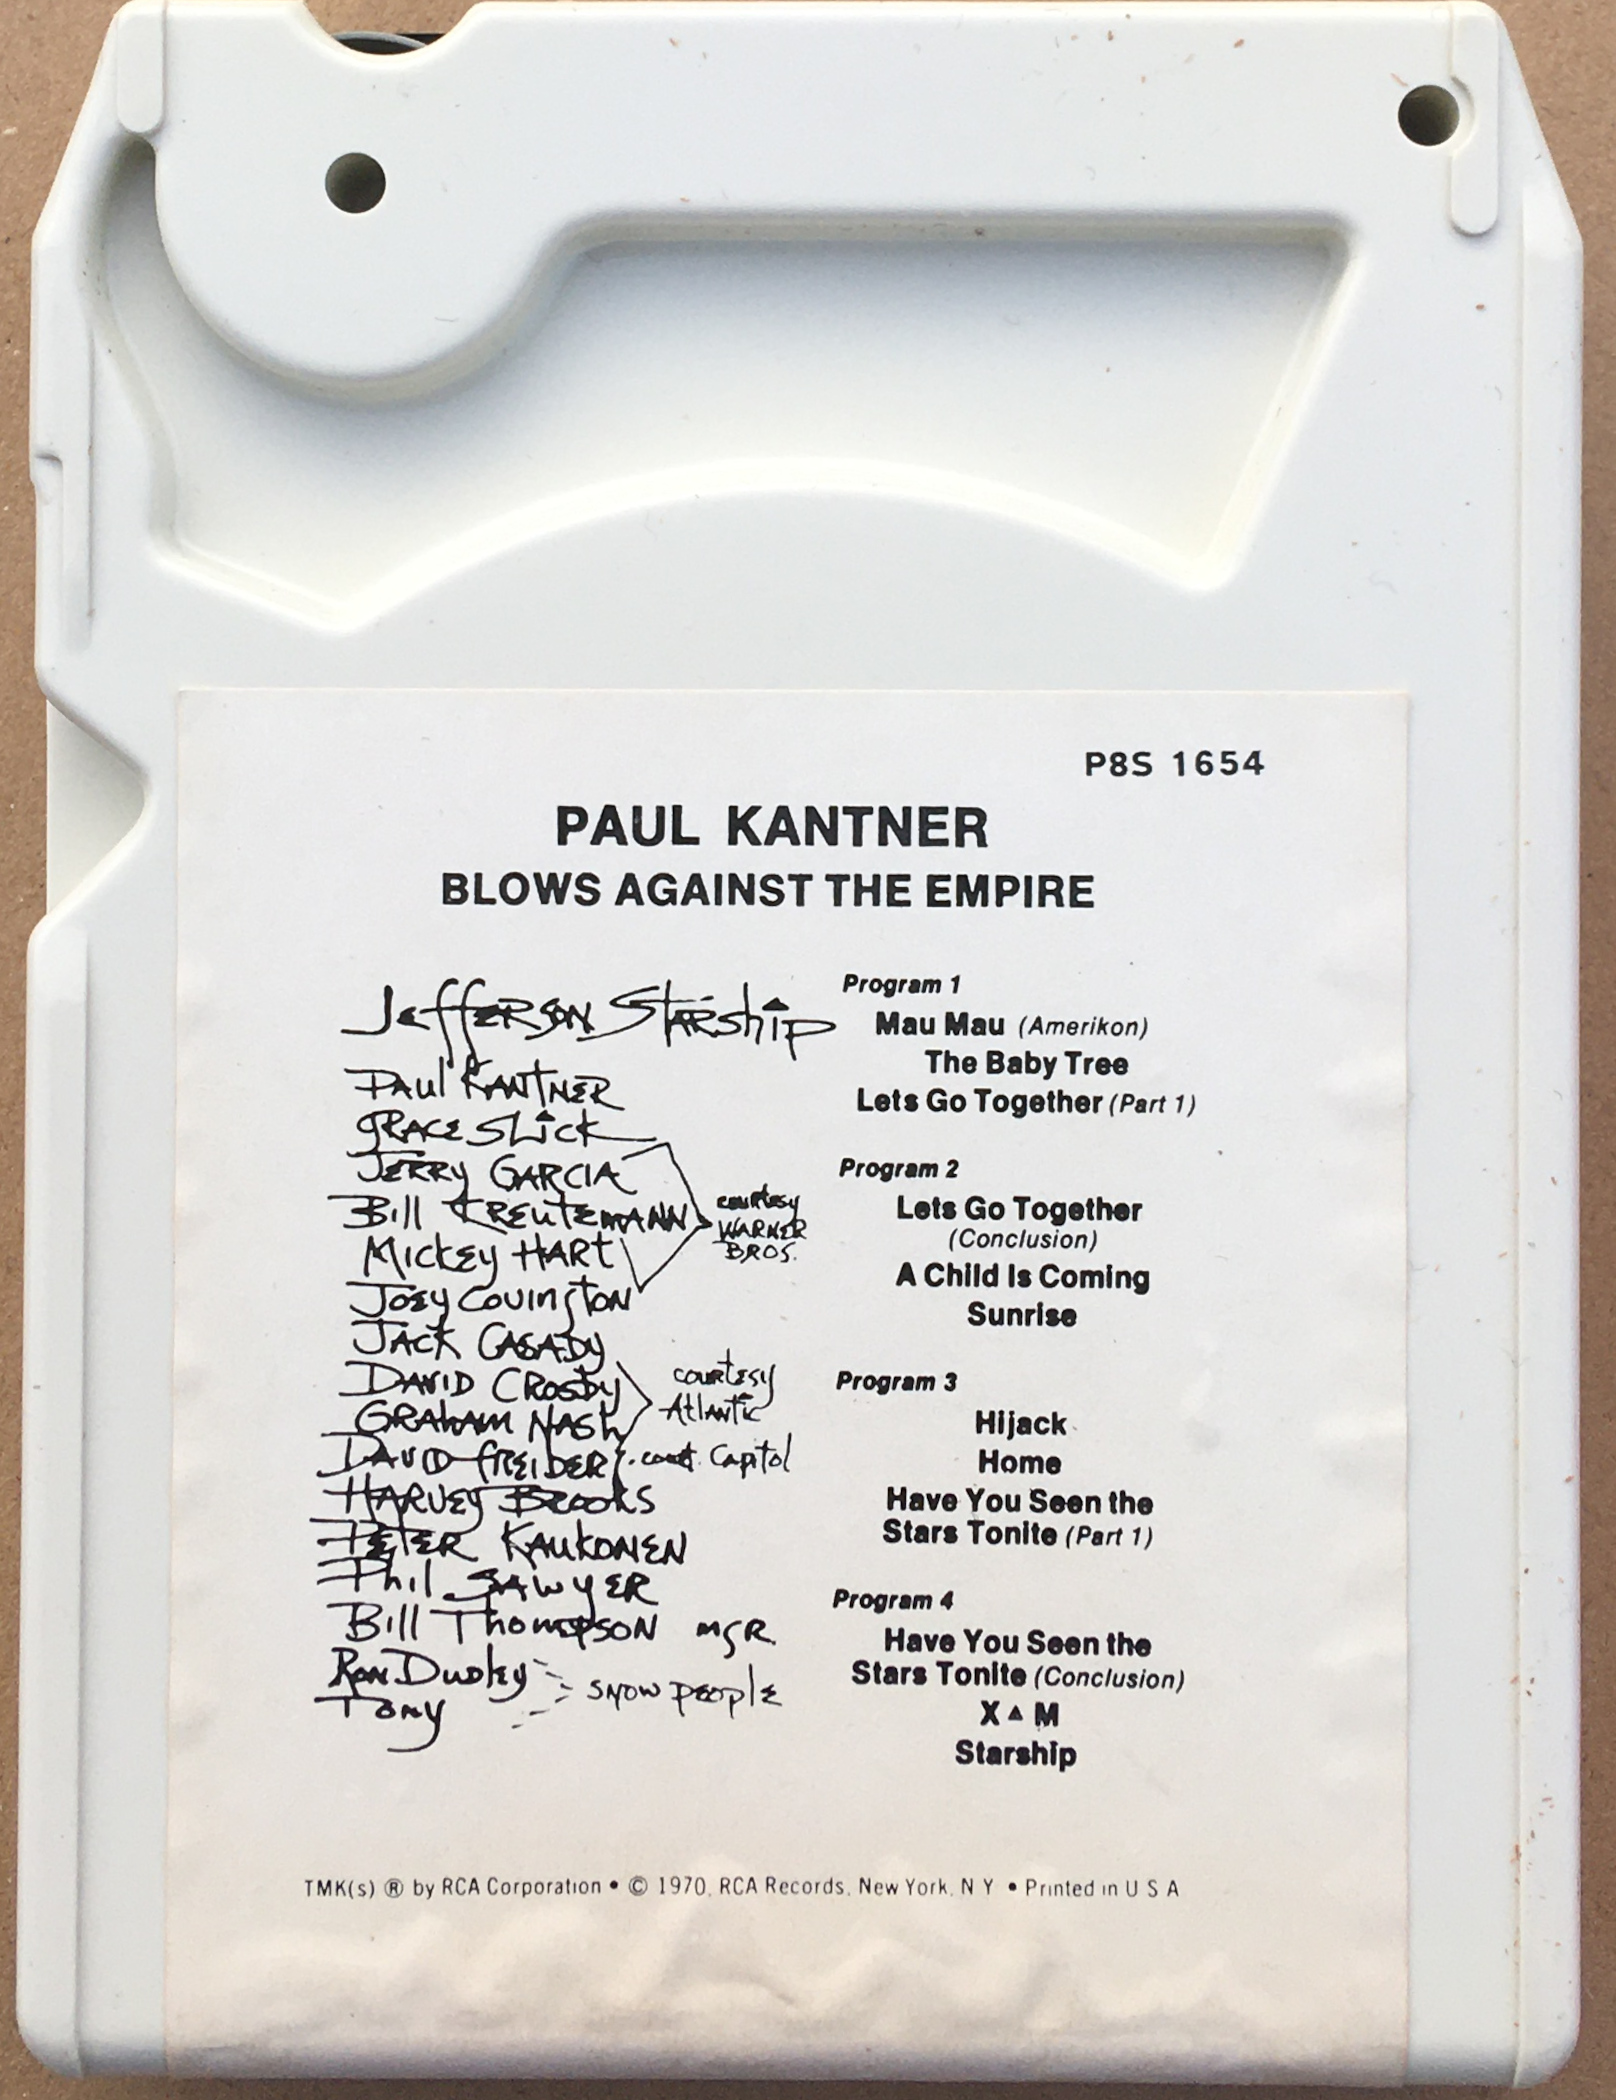 P8S 1654
PAUL KANTNER
BLOWS AGAINST THE EMPIRE
Jefferson Starship
Paul Kantner
Grace Slick
Jerry Garcia
Bill Kreutemann
Mickey Hart
courtesy
Warner
Bros.
Joey Covington
Jack Casady
David Crosby
Graham Nash
courtesy
Atlantic
David Freiber
court. Capitol
Harvey Brooks
Peter Kaukonen
Phil Sawyer
Bill Thompson mgr.
Ron Dudley
Tony
snow people
Program 1
Mau Mau (Amerikon)
The Baby Tree
Lets Go Together (Part 1)
Program 2
Lets Go Together
(Conclusion)
A Child Is Coming
Sunrise
Program 3
Hijack
Home
Have You Seen the
Stars Tonite (Part 1)
Program 4
Have You Seen the
Stars Tonite (Conclusion)
X ▲ M
Starship
TMK(s) ® by RCA Corporation • © 1970, RCA Records, New York, N Y • Printed in U S A